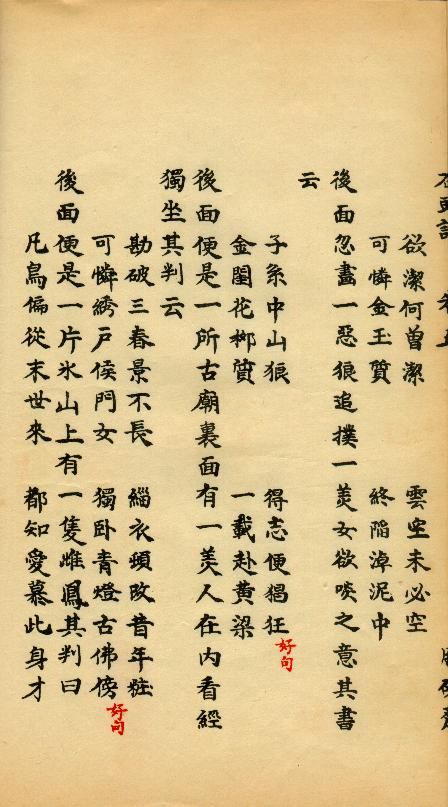 欲潔何曾潔　雲空未必空
可憐金玉質　終陷淖泥中
後面忽畫一惡狼追撲一美女欲啖之意其書
云
子系中山狼　得志便猖狂 好句
金閨花柳質　一載赴黄粱
後面便是一所古廟裏面有一美人在内看經
獨坐其判云
勘破三春景不長　緇衣頓改昔年粧
可憐綉戶侯門女　獨卧青燈古佛傍 好句
後面便是一片氷山上有一隻雌鳳其判曰
凡鳥偏從末世來　都知愛慕此身才